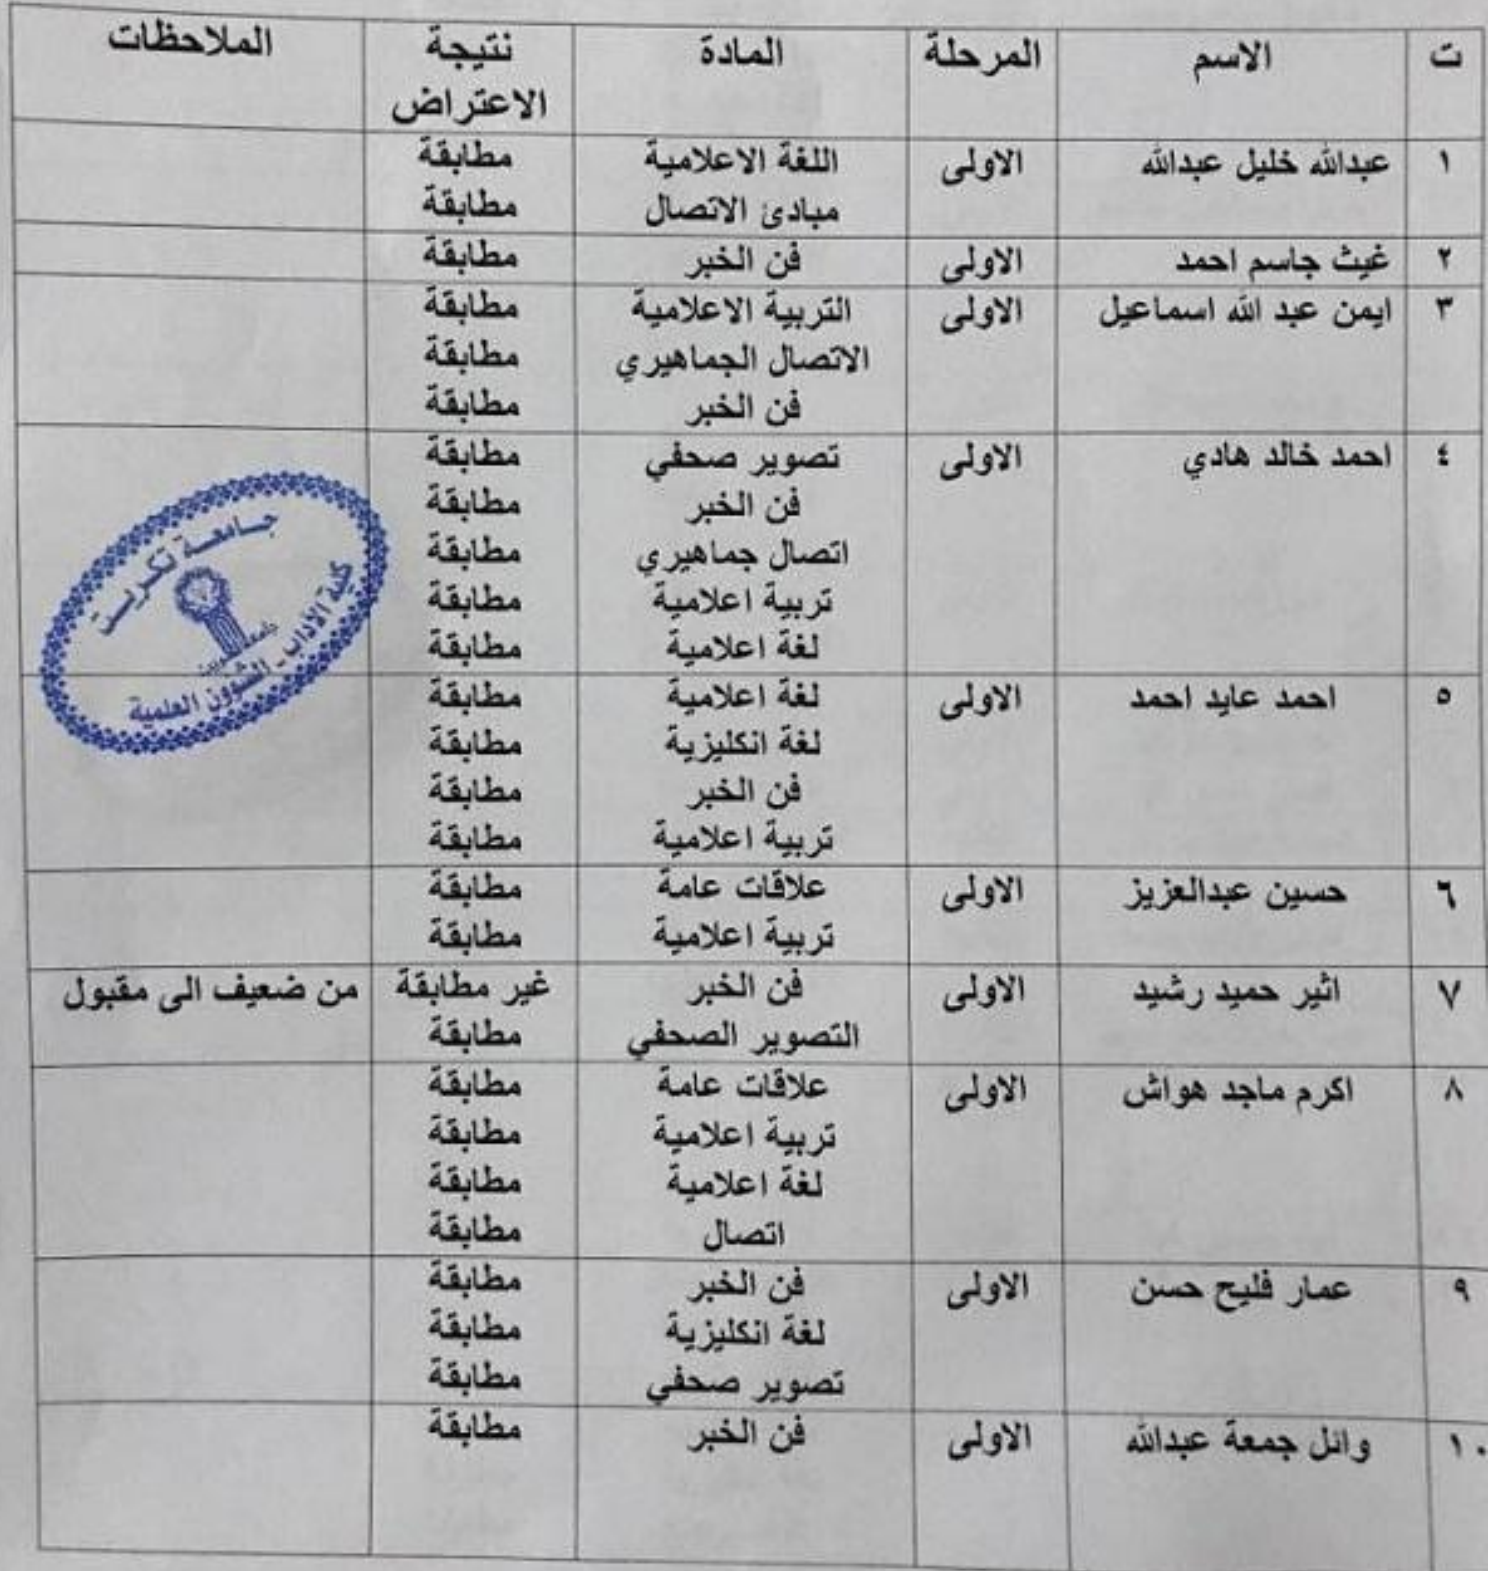 ت الاسم المرحلة المادة نتيجة الاعتراض الملاحظات
١ عبدالله خليل عبدالله الاولى اللغة الاعلامية مطابقة
مبادئ الاتصال مطابقة
٢ غيث جاسم احمد الاولى فن الخبر مطابقة
٣ ايمن عبد الله اسماعيل الاولى التربية الاعلامية مطابقة
الاتصال الجماهيري مطابقة
فن الخبر مطابقة
٤ احمد خالد هادي الاولى تصوير صحفي مطابقة
فن الخبر مطابقة
اتصال جماهيري مطابقة
تربية اعلامية مطابقة
لغة اعلامية مطابقة
٥ احمد عايد احمد الاولى لغة اعلامية مطابقة
لغة انكليزية مطابقة
فن الخبر مطابقة
تربية اعلامية مطابقة
٦ حسين عبدالعزيز الاولى علاقات عامة مطابقة
تربية اعلامية مطابقة
٧ اثير حميد رشيد الاولى فن الخبر غير مطابقة من ضعيف الى مقبول
التصوير الصحفي مطابقة
٨ اكرم ماجد هواش الاولى علاقات عامة مطابقة
تربية اعلامية مطابقة
لغة اعلامية مطابقة
اتصال مطابقة
٩ عمار فليح حسن الاولى فن الخبر مطابقة
لغة انكليزية مطابقة
تصوير صحفي مطابقة
١٠ وائل جمعة عبدالله الاولى فن الخبر مطابقة
جامعة تكريت
كلية الاداب - الشؤون العلمية